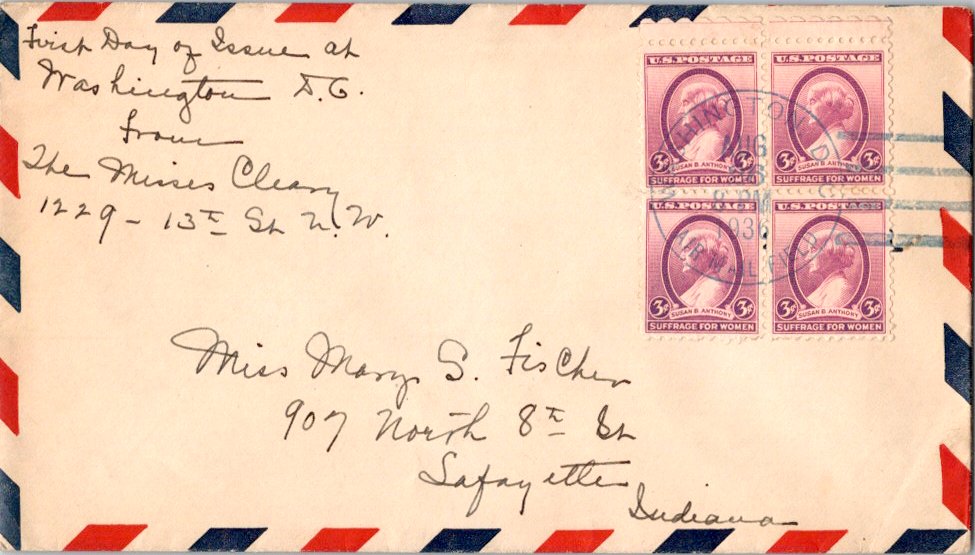 First Day of Issue at
Washington D.C.
from
The Misses Cleary
1229 - 13th St N.W.
U.S. POSTAGE
U.S. POSTAGE
3¢ 3¢
3¢ 3¢
SUSAN B. ANTHONY
SUSAN B. ANTHONY
SUFFRAGE FOR WOMEN
SUFFRAGE FOR WOMEN
U.S. POSTAGE
U.S. POSTAGE
3¢ 3¢
3¢ 3¢
SUSAN B. ANTHONY
SUSAN B. ANTHONY
SUFFRAGE FOR WOMEN
SUFFRAGE FOR WOMEN
WASHINGTON D.C.
AUG
26
8 PM
1936
AIR MAIL FIELD
Miss Mary S. Fischer
907 North 8th St
Lafayette
Indiana